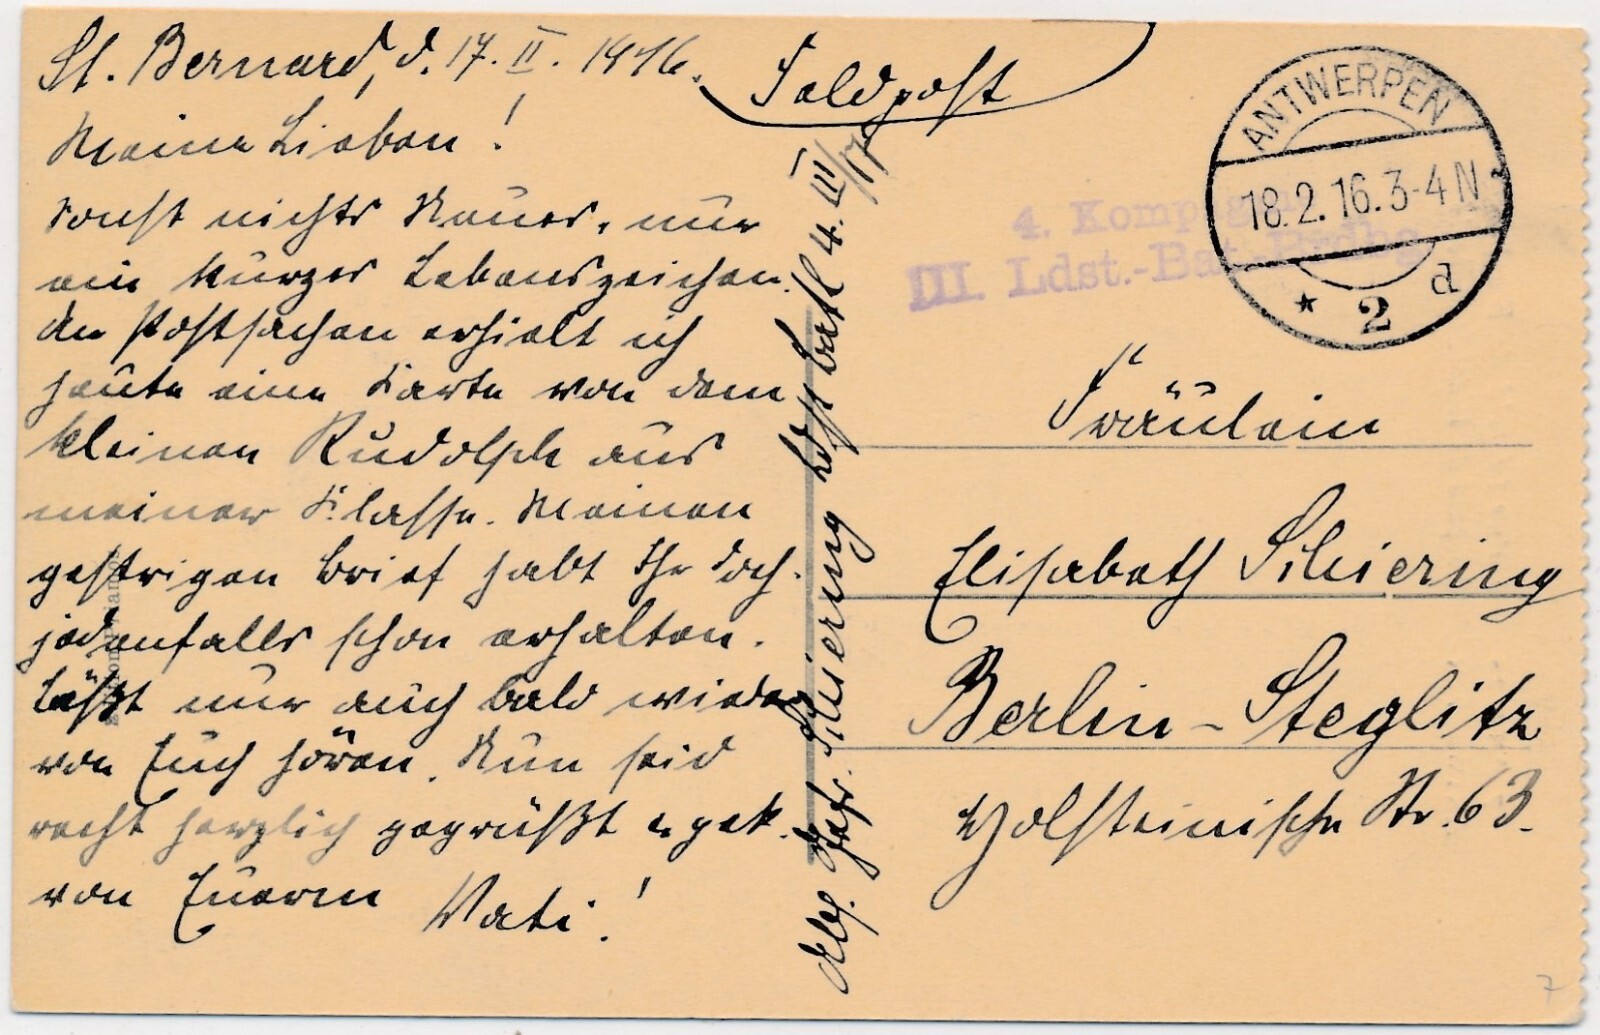 St. Bernard, d. 17. II. 1916.
Meine Lieben!
sonst nichts Neues, nur
ein kurzes Lebenszeichen.
An Postsachen erhielt ich
heute eine Karte von dem
kleinen Rudolph aus
meiner Klasse. Meinen
gestrigen Brief habt Ihr doch
jedenfalls schon erhalten.
Laßt nur auch bald wieder
von Euch hören. Nun seid
recht herzlich gegrüßt u. gek.
von Eurem Vati!
Feldpost
Abs. Gefr. Schiering Ldst. Batl 4. III/17
4. Kompagnie
III. Ldst.-Bat.
ANTWERPEN
18.2.16.3-4N
* 2 d
Fräulein
Elisabeth Schiering
Berlin-Steglitz
Holsteinische Str. 63.
7